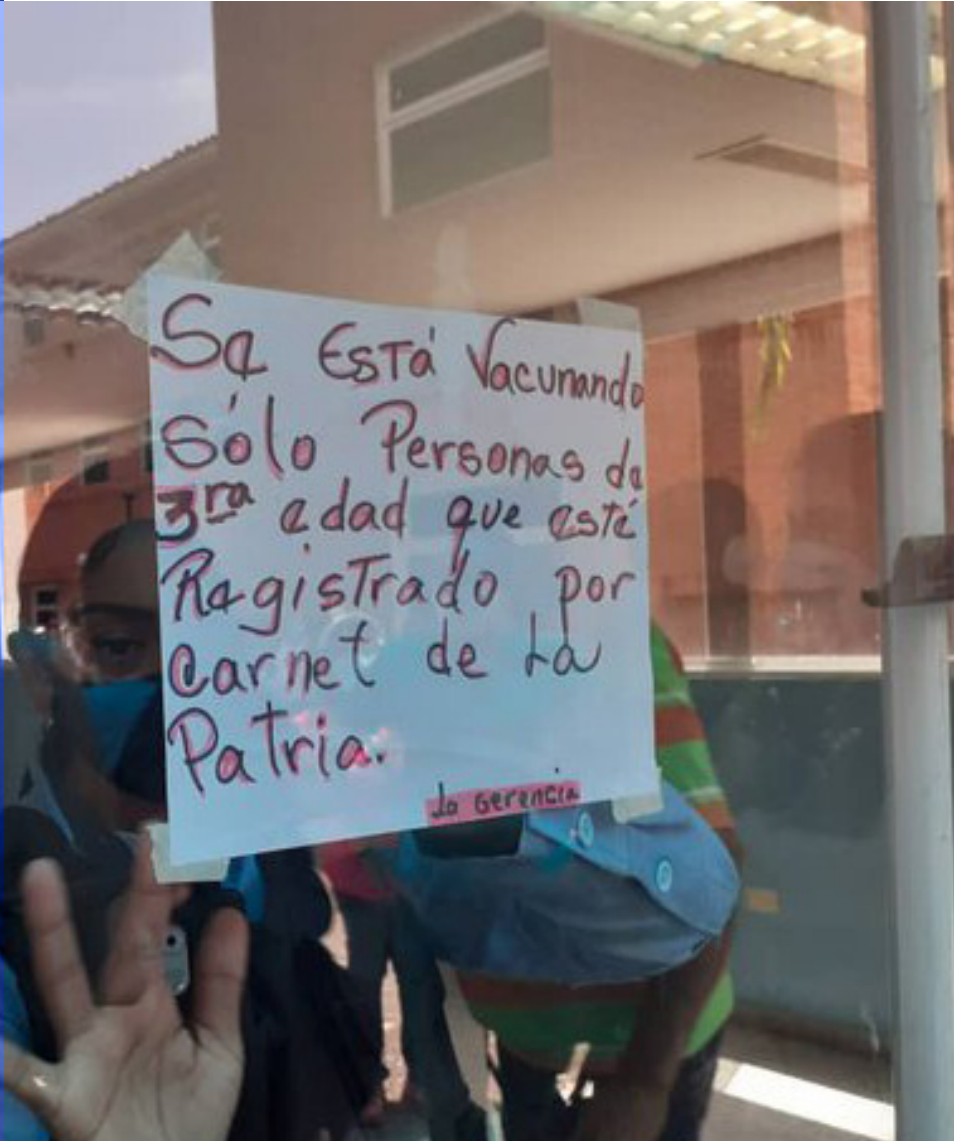 Se Está Vacunando
sólo Personas de
3ra edad que esté
RegisTrado por
carnet de La
PaTria.
La Gerencia